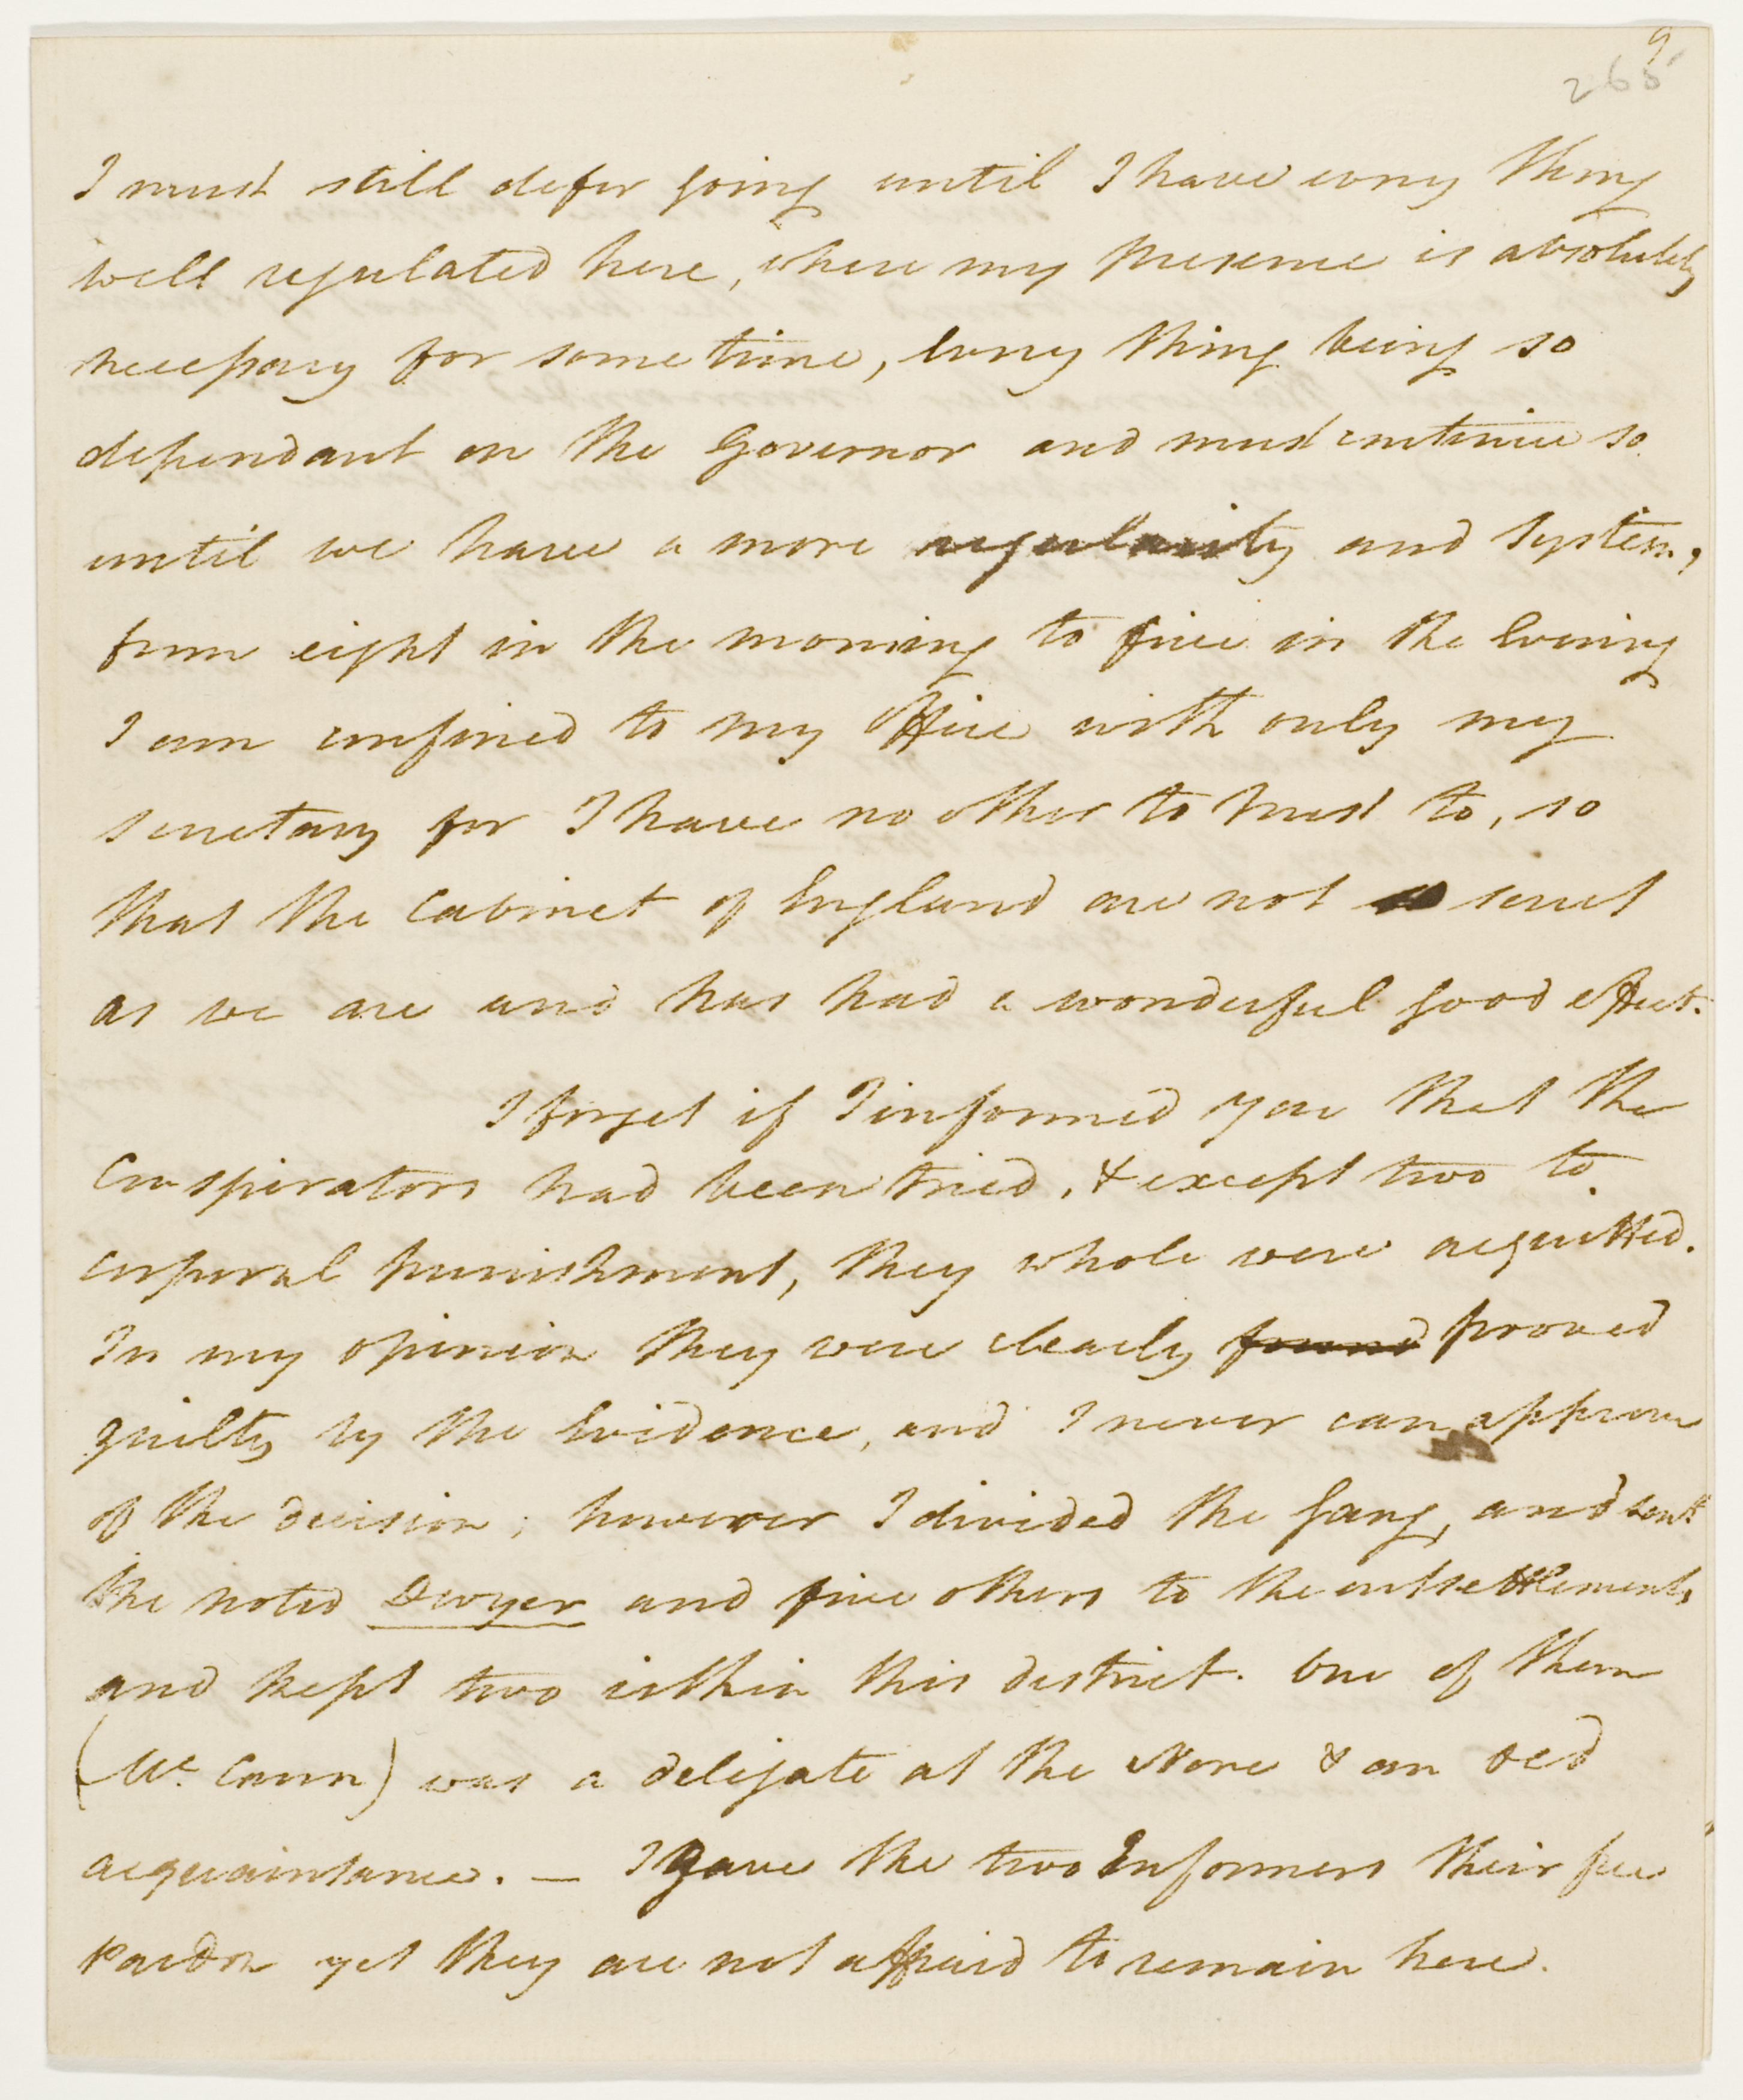 9
265
I must still defer going until I have every thing
well regulated here, where my presence is absolutely
necessary for some time, every thing being so
dependant on the Governor and must continue so
until we have a more regularity and System,
from eight in the morning to five in the Evening
I am confined to my Office with only my
secretary for I have no other to trust to, so
that the Cabinet of England are not so secret
as we are and has had a wonderful good effect.
I forget if I informed you that the
Conspirators had been tried, & except two to
corporal punishment, they whole were acquitted.
In my opinion they were clearly found proved
guilty by the Evidence, and I never can approve
of the decision; however I divided the Gang, and sent
the noted Dwyer and five others to the outsettlements
and kept two within this district. One of them
(Mc Cann) was a delegate at the Nore & an old
acquaintance. — I gave the two Informers their free
Pardon yet they are not affraid to remain here.